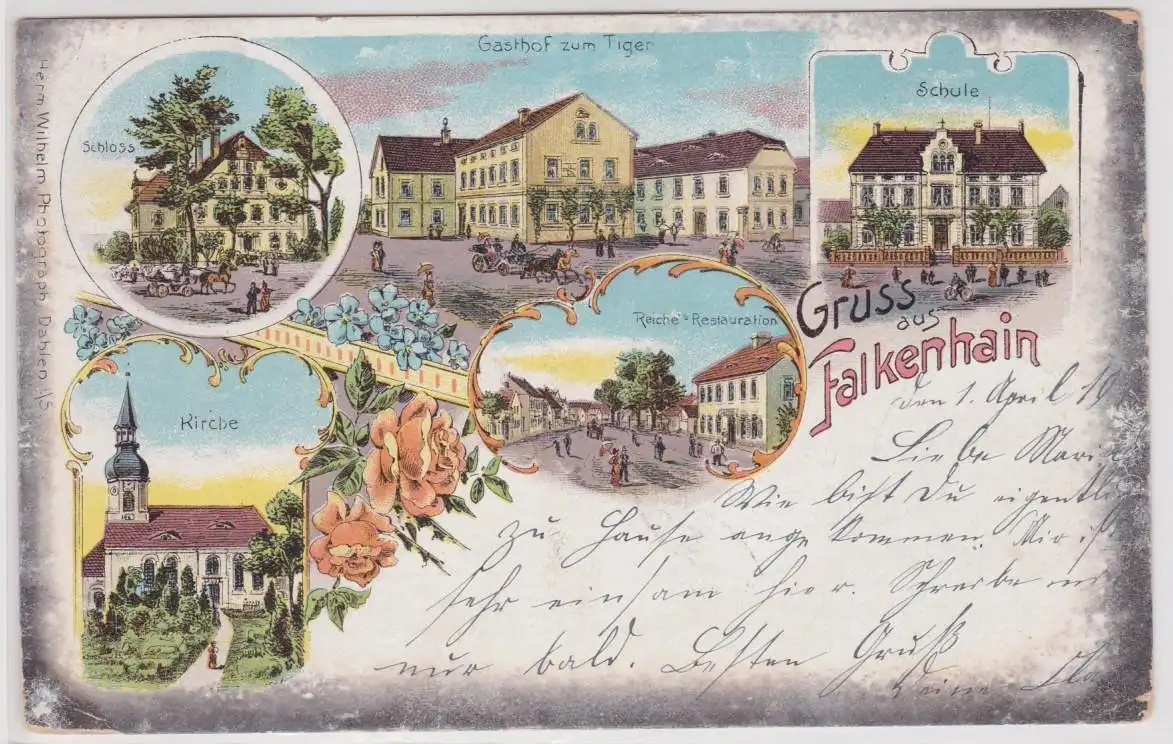 Gasthof zum Tiger
Schloss
Schule
Reiche's Restauration
Kirche
Gruss
aus
Falkenhain
Herm. Wilhelm Photograph. Dahlen i/S.
den 1. April 19
Liebe Maria
Wie bist Du eigentli
zu Hause angekommen. Mir ist
sehr einsam hier. Schreibe mir
nur bald. Besten Gruß
Deine